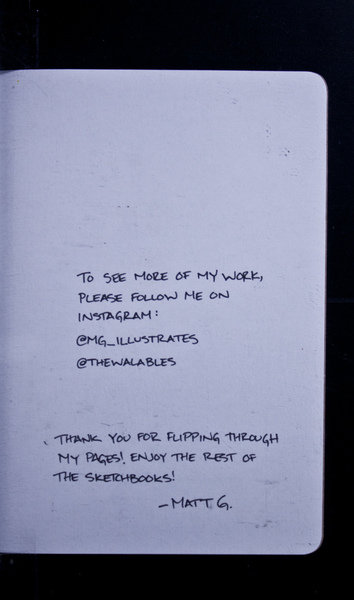 TO SEE MORE OF MY WORK,
PLEASE FOLLOW ME ON
INSTAGRAM:
@MG_ILLUSTRATES
@THEWALABLES
THANK YOU FOR FLIPPING THROUGH
MY PAGES! ENJOY THE REST OF
THE SKETCHBOOKS!
-MATT G.